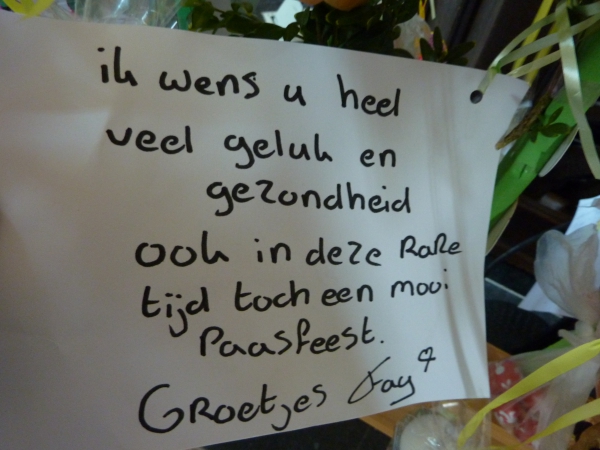 ik wens u heel
veel geluk en
gezondheid
ook in deze RaRe
tijd toch een mooi
Paasfeest.
GRoetjes Fay